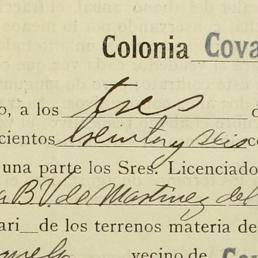 Colonia Cova
o, a los tres d
cientos treinta y seis co
una parte los Sres. Licenciado
a B V. de Martinez del
ari de los terrenos materia de
vecino de Co